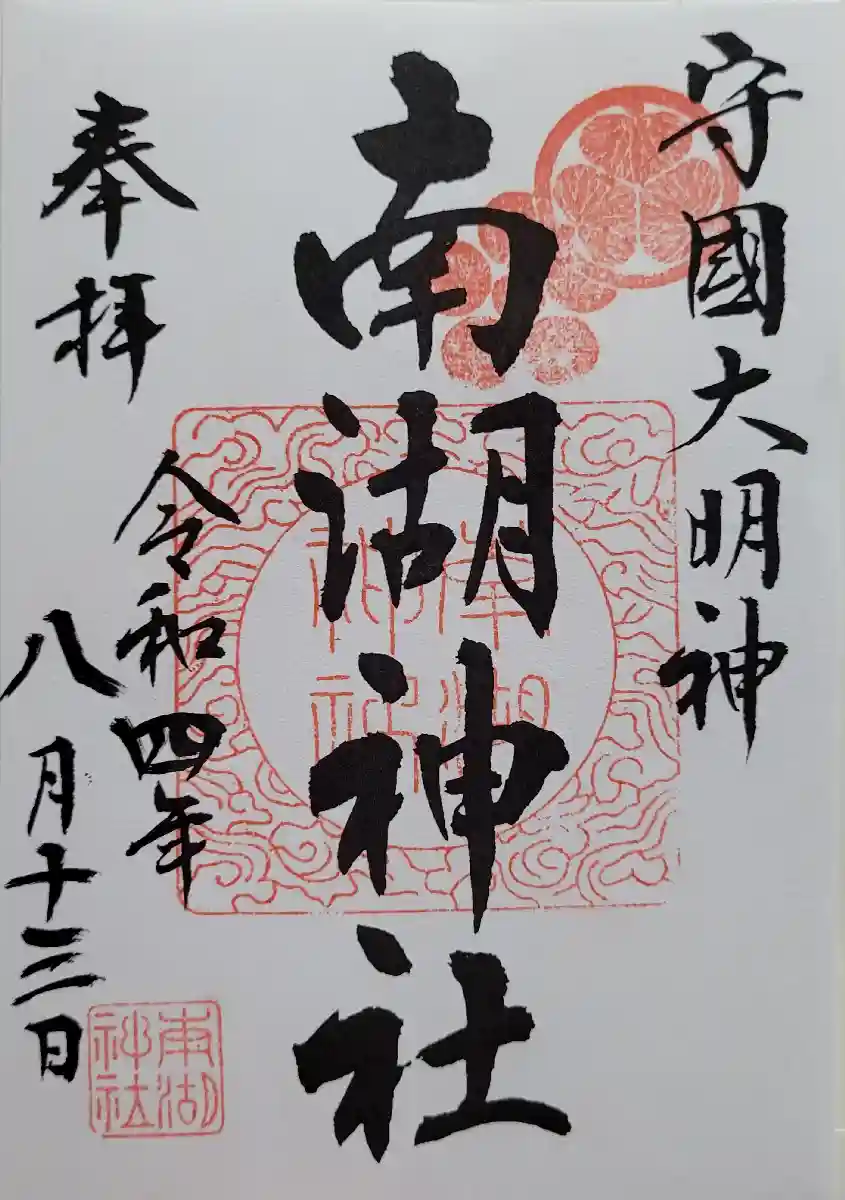 守國大明神
南湖神社
南湖神社
奉拝
令和四年
八月十三日
南湖神社